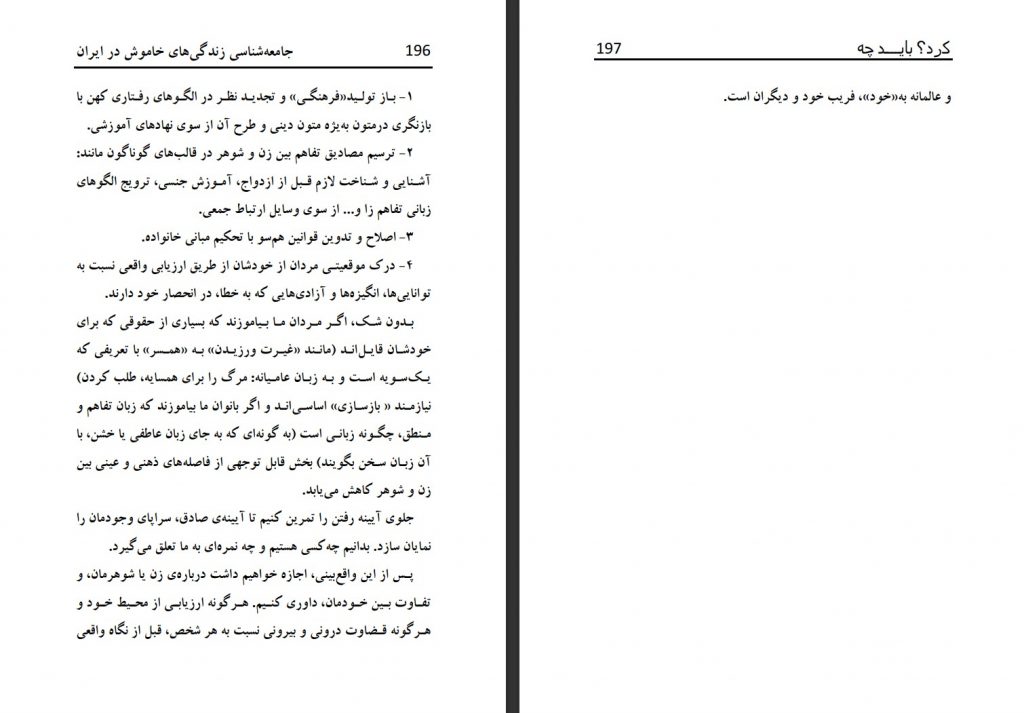 196 جامعه‌شناسی زندگی‌های خاموش در ایران
۱- بـاز تولیـد«فرهنگـی» و تجدیـد نظـر در الگـوهای رفـتاری کهن با
بازنگری درمتون به‌یژه متون دینی و طرح آن از سوی نهادهای آموزشی.
۲- ترسیم مصادیق تفاهم بین زن و شوهر در قالب‌های گوناگون مانند:
آشـنایی و شـناخت لازم قـبل از ازدواج، آمـوزش جنسی، ترویج الگوهای
زبانی تفاهم زا و... از سوی وسایل ارتباط جمعی.
۳- اصلاح و تدوین قوانین هم‌سو با تحکیم مبانی خانواده.
۴- درک موقعیتـی مردان از خودشان از طریق ارزیابی واقعی نسبت به
توانایی‌ها، انگیزه‌ها و آزادی‌هایی که به خطا، در انحصار خود دارند.
بـدون شـک، اگـر مـردان مـا بـیاموزند که بسیاری از حقوقی که برای
خودشـان قایل‌انـد (مانـند «غیـرت ورزیـدن» بـه «همـسر» با تعریفی که
یـک‌سویه اسـت و بـه زبـان عامـیانه: مـرگ را بـرای همسایه، طلب کردن)
نیازمـند « بازسـازی» اساسـی‌انـد و اگـر بانوان ما بیاموزند که زبان تفاهم و
مـنطق، چگـونه زبانـی است (به گونه‌ای که به جای زبان عاطفی یا خشن، با
آن زبـان سـخن بگویند) بخش قابل توجهی از فاصله‌های ذهنی و عینی بین
زن و شوهر کاهش می‌یابد.
جلوی آیینه رفتن را تمرین کنیم تا آیینه‌ی صادق، سراپای وجودمان را
نمایان سازد. بدانیم چه‌کسی هستیم و چه نمره‌ای به ما تعلق می‌گیرد.
پـس از این واقع‌بینی، اجازه خواهیم داشت درباره‌ی زن یا شوهرمان، و
تفـاوت بـین خـودمان، داوری کنـیم. هـرگونه ارزیابـی از محـیط خـود و
هـرگونه قـضاوت درونـی و بیرونی نسبت به هر شخص، قبل از نگاه واقعی
کرد؟ بایـــد چه 197
و عالمانه به«خود»، فریب خود و دیگران است.